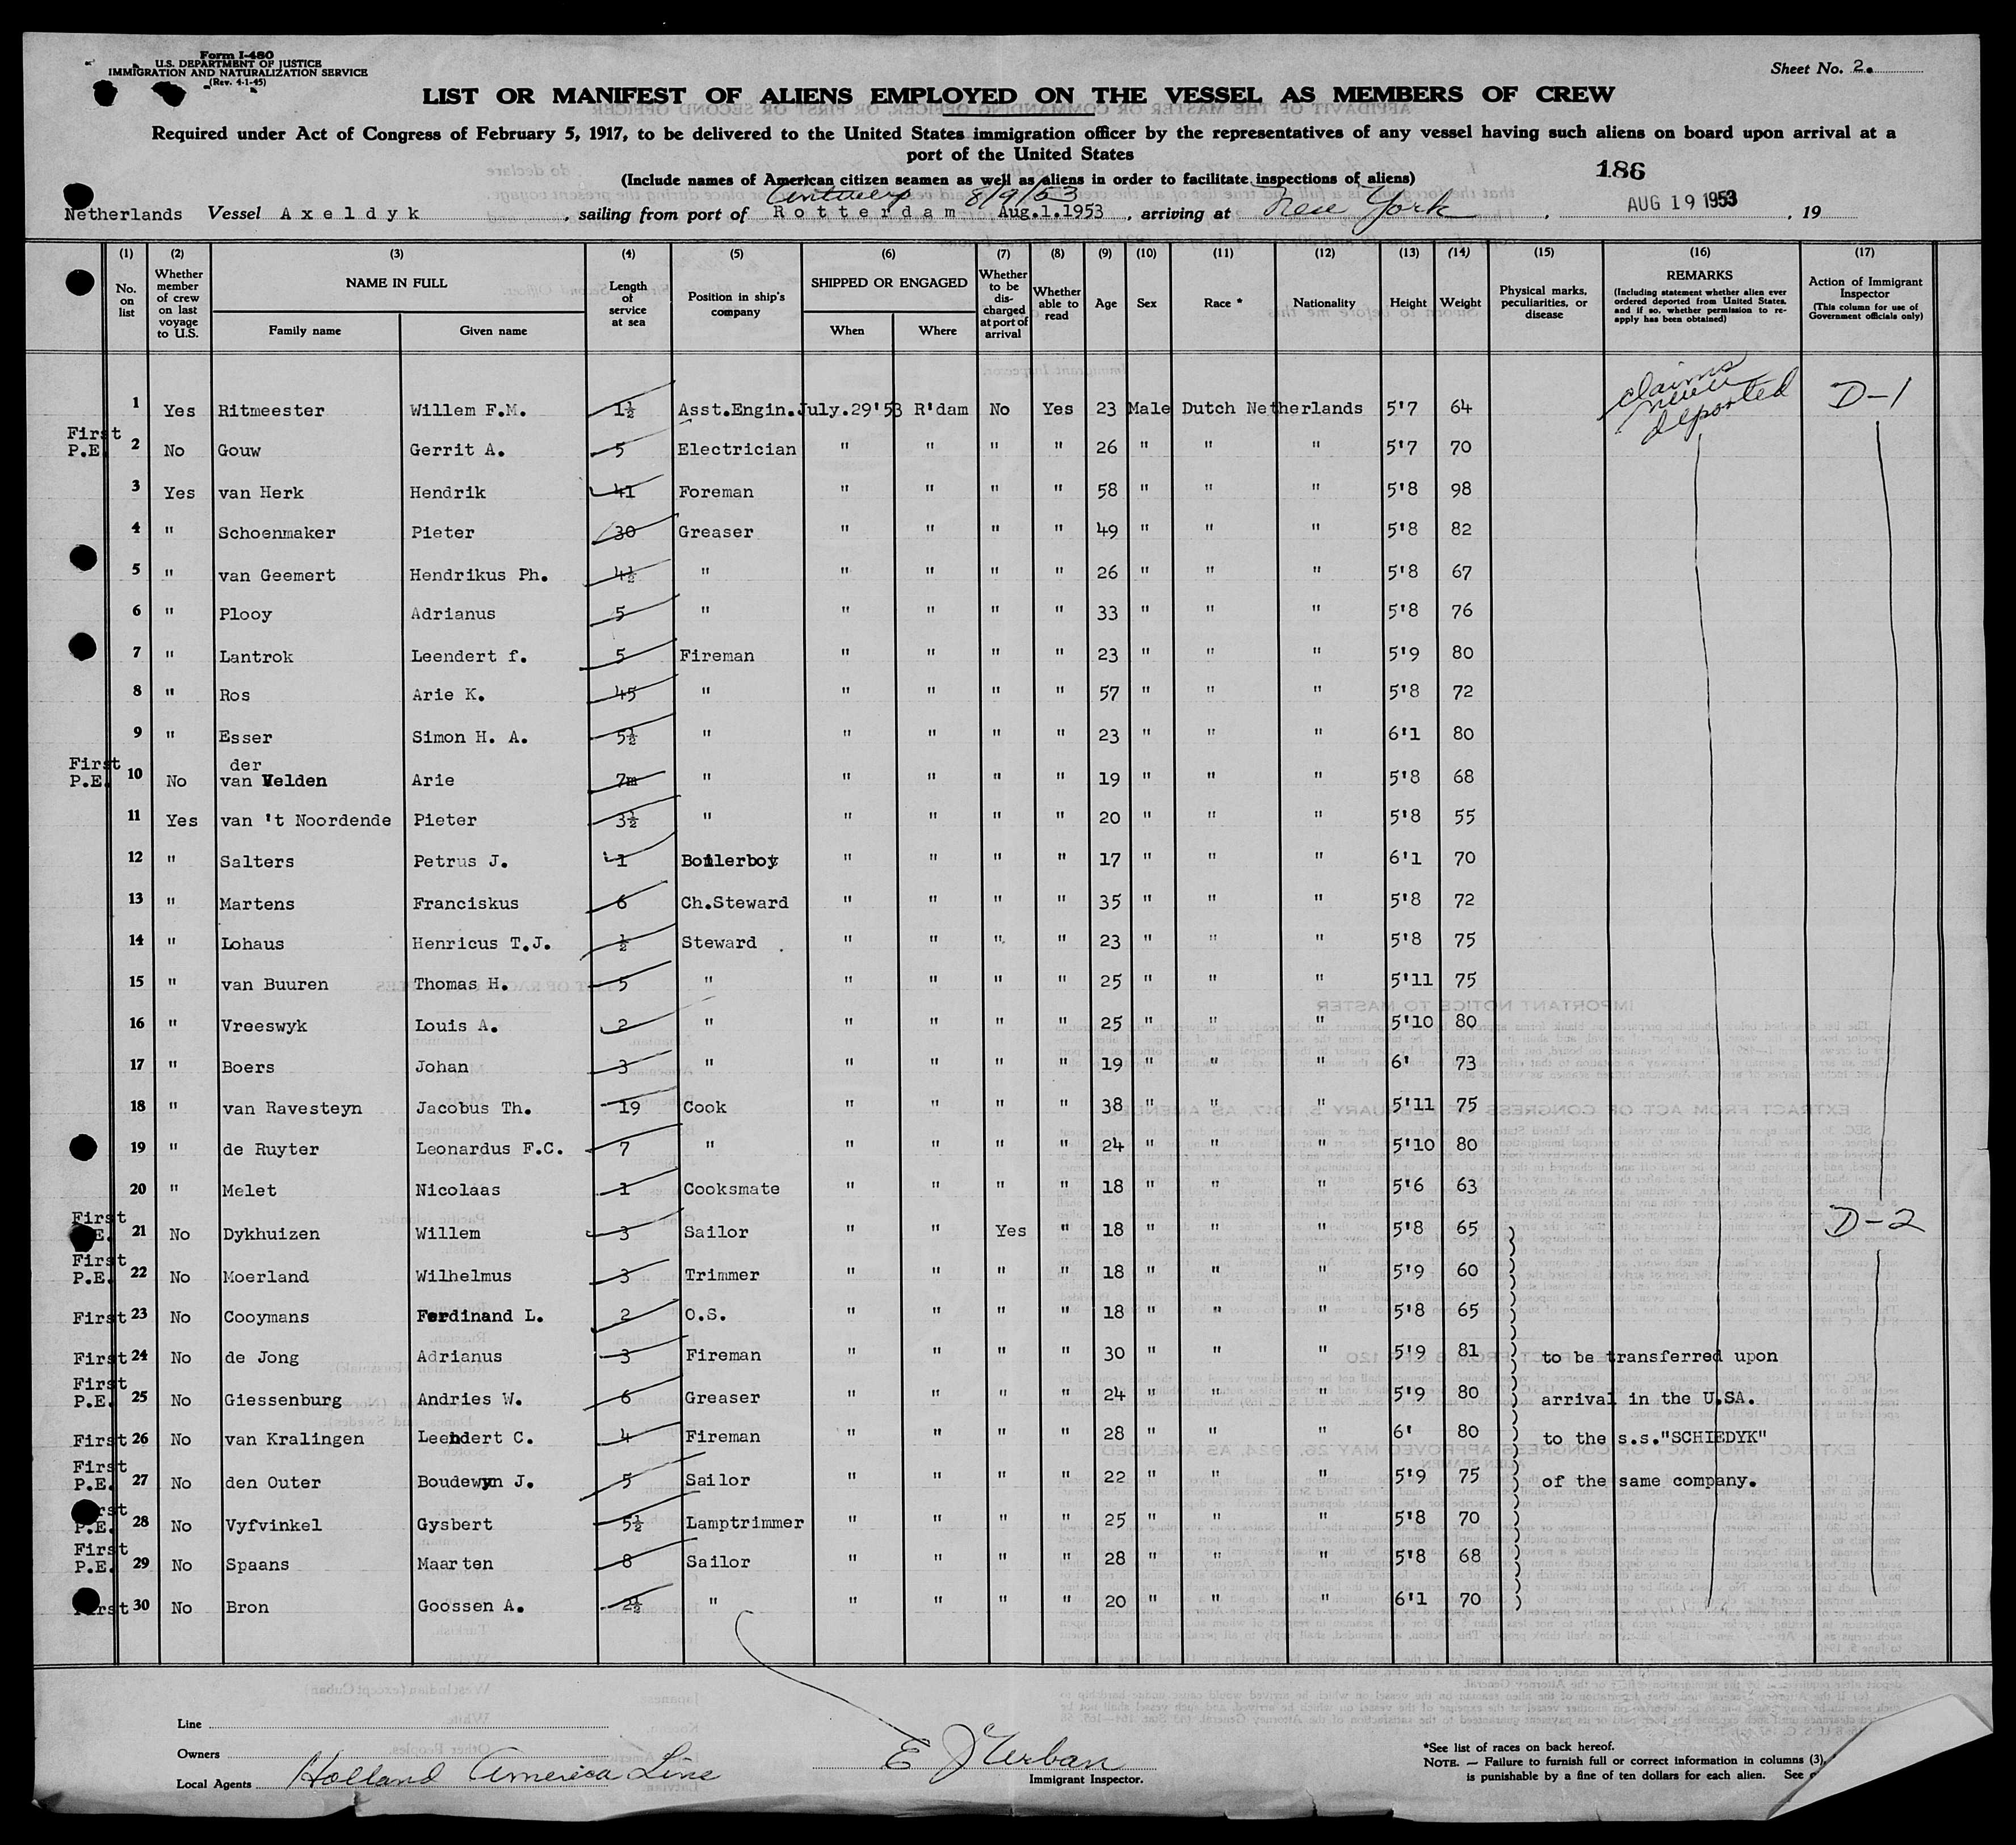 Form I-480
U.S. DEPARTMENT OF JUSTICE
IMMIGRATION AND NATURALIZATION SERVICE
(Rev. 4-1-45)
Sheet No. 2.
LIST OR MANIFEST OF ALIENS EMPLOYED ON THE VESSEL AS MEMBERS OF CREW
Required under Act of Congress of February 5, 1917, to be delivered to the United States immigration officer by the representatives of any vessel having such aliens on board upon arrival at a
port of the United States
186
(Include names of American citizen seamen as well as aliens in order to facilitate inspections of aliens)
Antwerp 8/9/53
Netherlands Vessel Axeldyk, sailing from port of Rotterdam Aug.1.1953, arriving at New York, AUG 19 1953, 19
(1) (2) (3) (4) (5) (6) (7) (8) (9) (10) (11) (12) (13) (14) (15) (16) (17)
No. on list
Whether member of crew on last voyage to U.S.
NAME IN FULL
Family name Given name
Length of service at sea
Position in ship's company
SHIPPED OR ENGAGED
When Where
Whether to be discharged at port of arrival
Whether able to read
Age
Sex
Race *
Nationality
Height
Weight
Physical marks, peculiarities, or disease
REMARKS
(Including statement whether alien ever ordered deported from United States, and if so, whether permission to re-apply has been obtained)
Action of Immigrant Inspector
(This column for use of Government officials only)
1 Yes Ritmeester Willem F.M. 1½ Asst.Engin. July.29'53 R'dam No Yes 23 Male Dutch Netherlands 5'7 64 claims never deported D-1
First P.E. 2 No Gouw Gerrit A. 5 Electrician " " " " 26 " " " 5'7 70
3 Yes van Herk Hendrik 41 Foreman " " " " 58 " " " 5'8 98
4 " Schoenmaker Pieter 30 Greaser " " " " 49 " " " 5'8 82
5 " van Geemert Hendrikus Ph. 4½ " " " " " 26 " " " 5'8 67
6 " Plooy Adrianus 5 " " " " " 33 " " " 5'8 76
7 " Lantrok Leendert f. 5 Fireman " " " " 23 " " " 5'9 80
8 " Ros Arie K. 45 " " " " " 57 " " " 5'8 72
9 " Esser Simon H. A. 5½ " " " " " 23 " " " 6'1 80
First P.E. 10 No van der Velden Arie 7m " " " " " 19 " " " 5'8 68
11 Yes van 't Noordende Pieter 3½ " " " " " 20 " " " 5'8 55
12 " Salters Petrus J. 1 Boilerboy " " " " 17 " " " 6'1 70
13 " Martens Franciskus 6 Ch.Steward " " " " 35 " " " 5'8 72
14 " Lohaus Henricus T.J. ½ Steward " " " " 23 " " " 5'8 75
15 " van Buuren Thomas H. 5 " " " " " 25 " " " 5'11 75
16 " Vreeswyk Louis A. 2 " " " " " 25 " " " 5'10 80
17 " Boers Johan 3 " " " " " 19 " " " 6' 73
18 " van Ravesteyn Jacobus Th. 19 Cook " " " " 38 " " " 5'11 75
19 " de Ruyter Leonardus F.C. 7 " " " " " 24 " " " 5'10 80
20 " Melet Nicolaas 1 Cooksmate " " " " 18 " " " 5'6 63
First E. 21 No Dykhuizen Willem 3 Sailor " " Yes " 18 " " " 5'8 65 D-2
First P.E. 22 No Moerland Wilhelmus 3 Trimmer " " " " 18 " " " 5'9 60
First 23 No Cooymans Ferdinand L. 2 O.S. " " " " 18 " " " 5'8 65
First 24 No de Jong Adrianus 3 Fireman " " " " 30 " " " 5'9 81 to be transferred upon
First P.E. 25 No Giessenburg Andries W. 6 Greaser " " " " 24 " " " 5'9 80 arrival in the U.SA.
First 26 No van Kralingen Leendert C. 4 Fireman " " " " 28 " " " 6' 80 to the s.s."SCHIEDYK"
First P.E. 27 No den Outer Boudewyn J. 5 Sailor " " " " 22 " " " 5'9 75 of the same company.
First P.E. 28 No Vyfvinkel Gysbert 5½ Lamptrimmer " " " " 25 " " " 5'8 70
First P.E. 29 No Spaans Maarten 8 Sailor " " " " 28 " " " 5'8 68
First 30 No Bron Goossen A. 2½ " " " " " 20 " " " 6'1 70
Line
Owners
Local Agents Holland America Line
E J Urban
Immigrant Inspector.
*See list of races on back hereof.
NOTE. — Failure to furnish full or correct information in columns (3),
is punishable by a fine of ten dollars for each alien. See